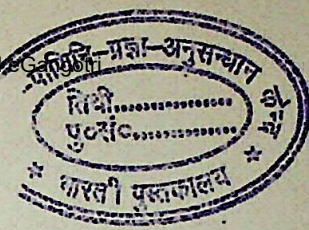 eGangotri
प्रज्ञा-अनुसन्धान
तिथी..................
पु०सं०..................
* भारती पुस्तकालय *